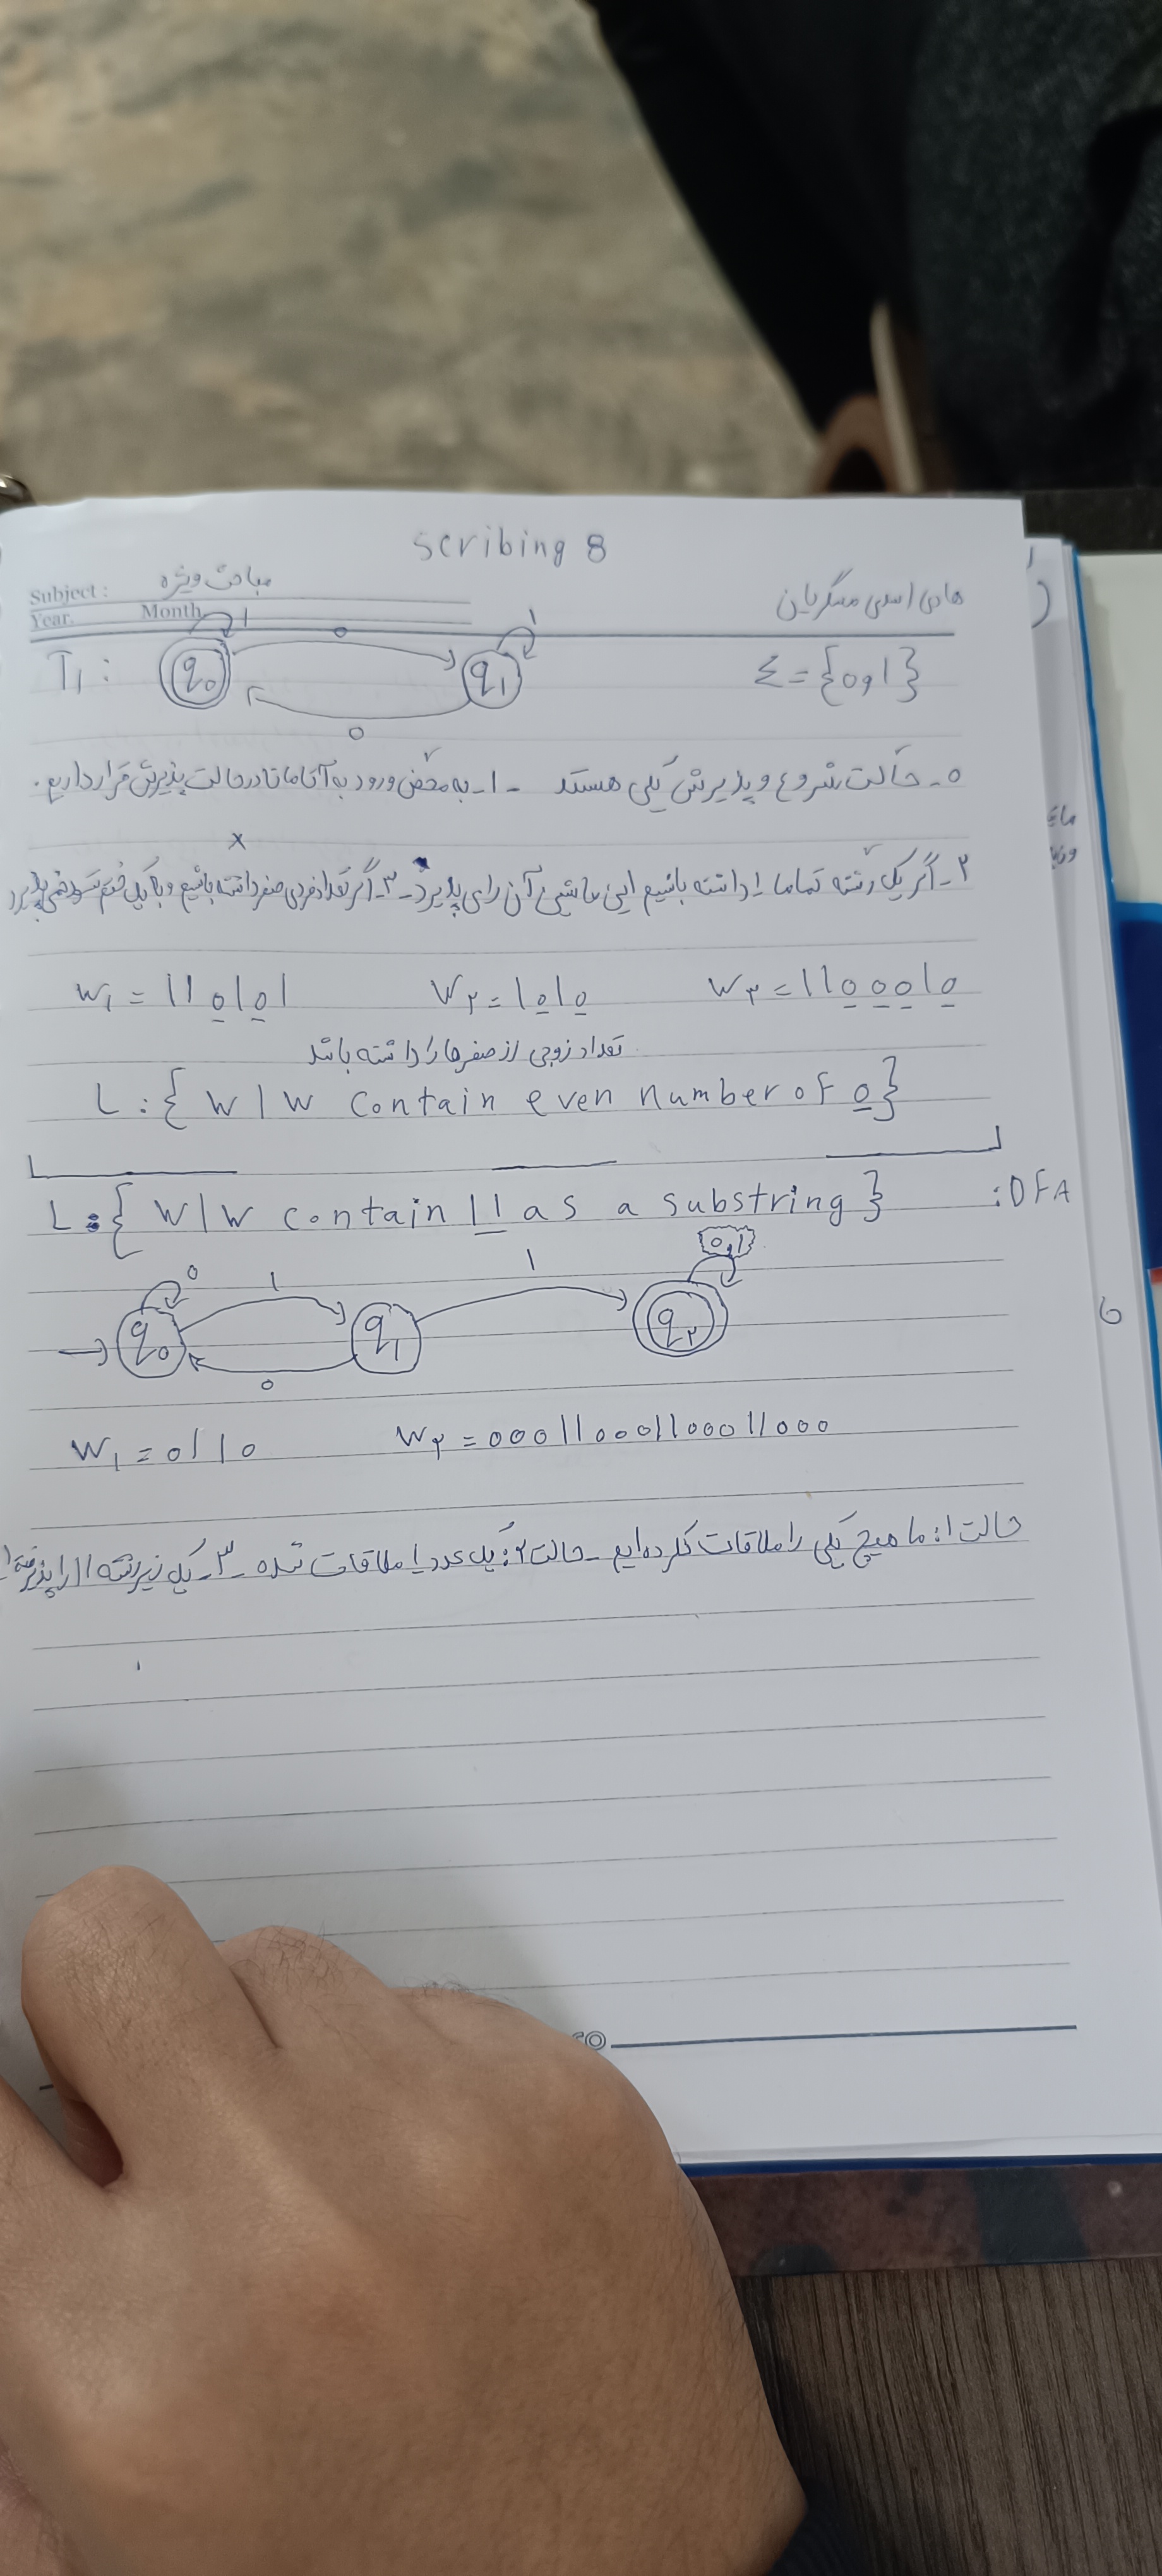 scribing 8
Subject: مباحث ویژه
هادی اسدی مسگریان
Year. Month
T1: q0 1 0 q1 1 0 Σ = {0 و 1}
0- حالت شروع و پذیرش یکی هستند - 1- به محض ورود به آتاماتا در حالت پذیرش قرار داریم.
2- اگر یک رشته تماما 1 داشته باشیم این ماشین آن را می پذیرد - 3- اگر تعداد فردی صفر داشته باشیم و با یک ختم شود نمی پذیرد
w1 = 110101 w2 = 1010 w3 = 1100010
تعداد زوجی از صفرها را داشته باشد
L: { w | w contain even number of 0 }
L: { w | w contain 11 as a substring } : DFA
q0 0 1 q1 1 q2 0,1 0
w1 = 01110 w2 = 000110001100011000
حالت 1: ما هیچ یکی را ملاقات نکرده ایم - حالت 2: یک عدد 1 ملاقات شده - 3- یک زیررشته 11 را پذیرفته